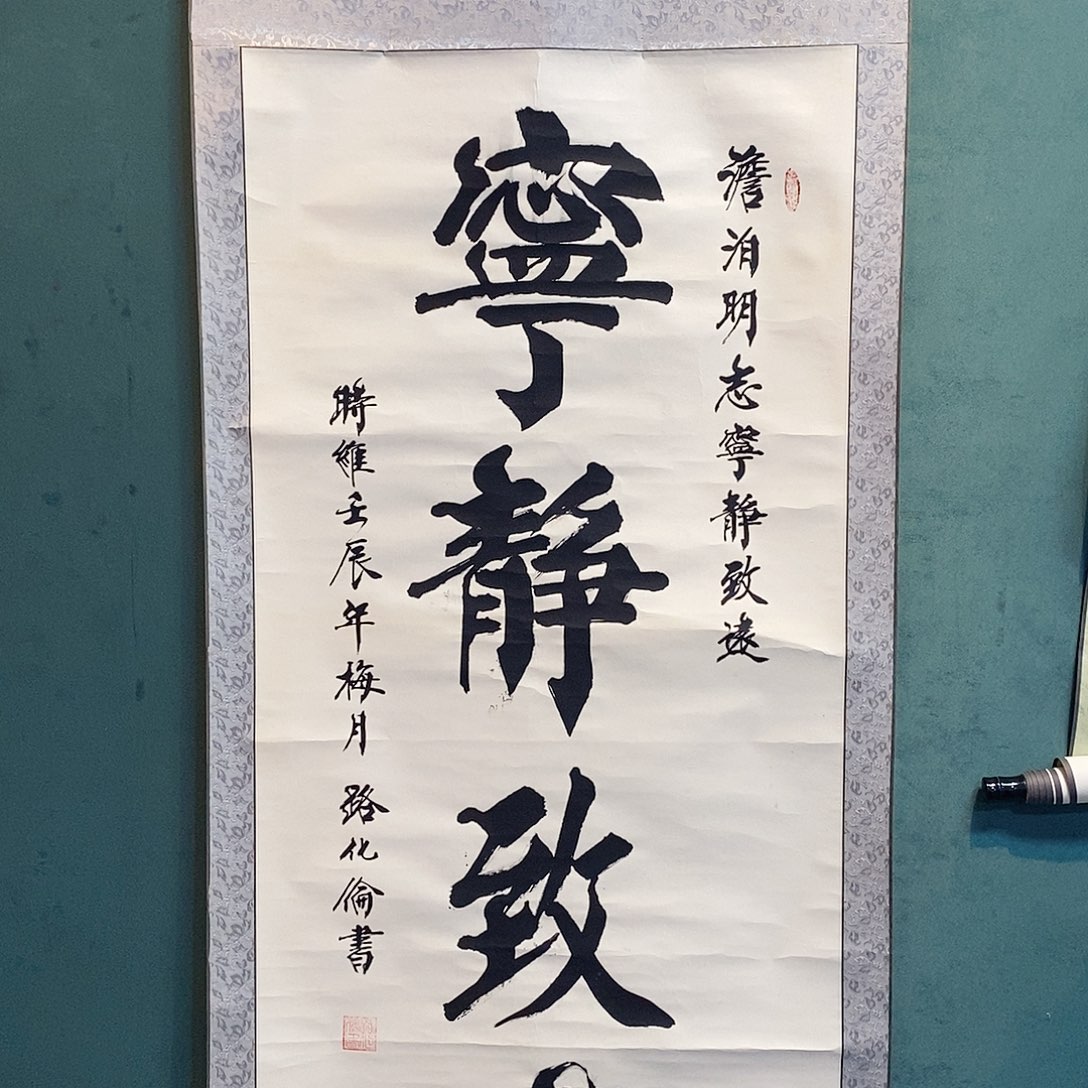 澹泊明志寧靜致遠
寧靜致
時維壬辰年梅月 路化倫書